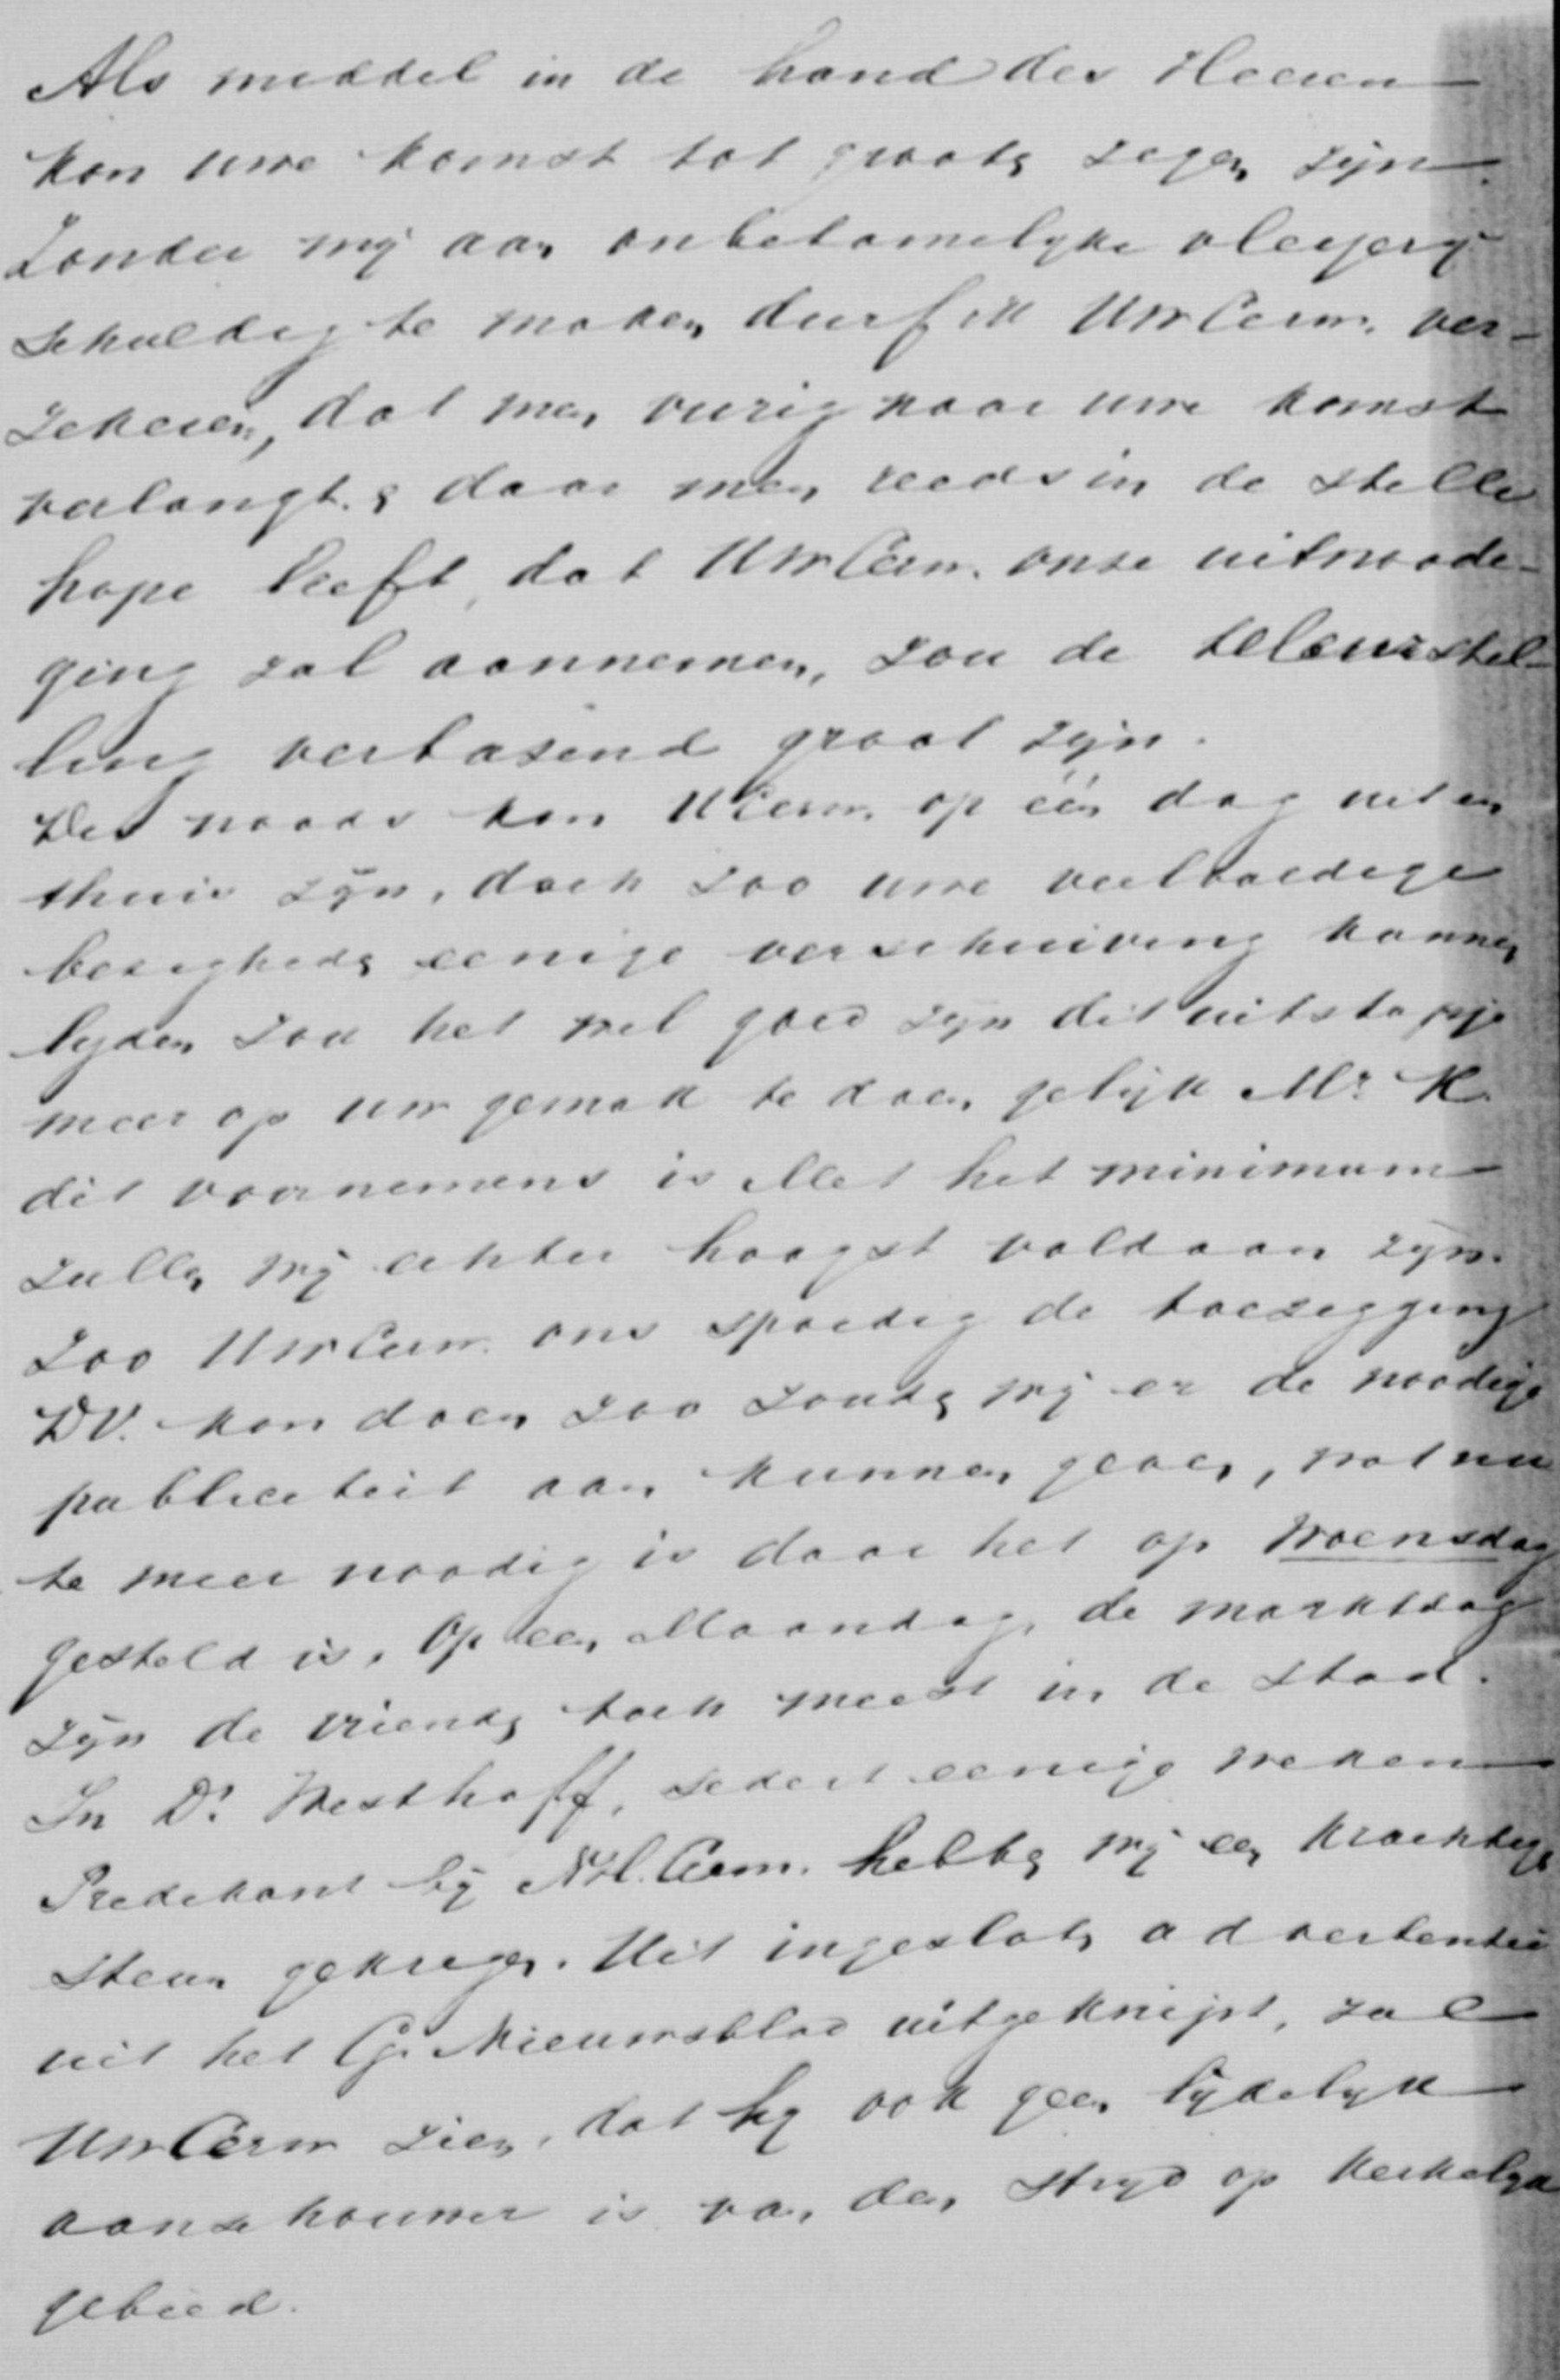 Als middel in de hand des Heeren
kan uwe komst tot groote zegen zijn.
Zonder mij aan onbetamelyke vleyery
schuldig te maken durf ik UwEerw. ver-
zekeren, dat men vurig naar uwe komst
verlangt. & daar men reeds in de stelle
hope leeft, dat UwEerw. onze uitnoodi-
ging zal aannemen, zou de teleurstel-
ling verbazend groot zijn.
Des noods kan UEerw. op één dag uit en
thuis zijn, doch zoo uwe veelvuldige
bezigheden eenige verschuiving kunnen
lyden zou het wel goed zijn dit uitstapje
meer op uw gemak te doen, gelijk Mr K.
dit voornemens is. Met het minimum
zullen wij echter hoogst voldaan zijn.
Zoo UwEerw. ons spoedig de toezegging
DV. kan doen zoo zouden wij er de noodige
publiciteit aan kunnen geven, wat nu
te meer noodig is daar het op Woensdag
gesteld is. Op een Maandag, de marktdag
zijn de vrienden toch meest in de stad.
In Ds. Westhoff, sedert eenige weken
Predikant bij N. H. Gem. hebben wij een krachtige
steun gekregen. Uit ingesloten advertentie
uit het G. Nieuwsblad uitgeknipt, zal
UwEerw zien, dat hy ook geen lijdelyk
aanschouwer is van den stryd op kerkelyk
gebied.